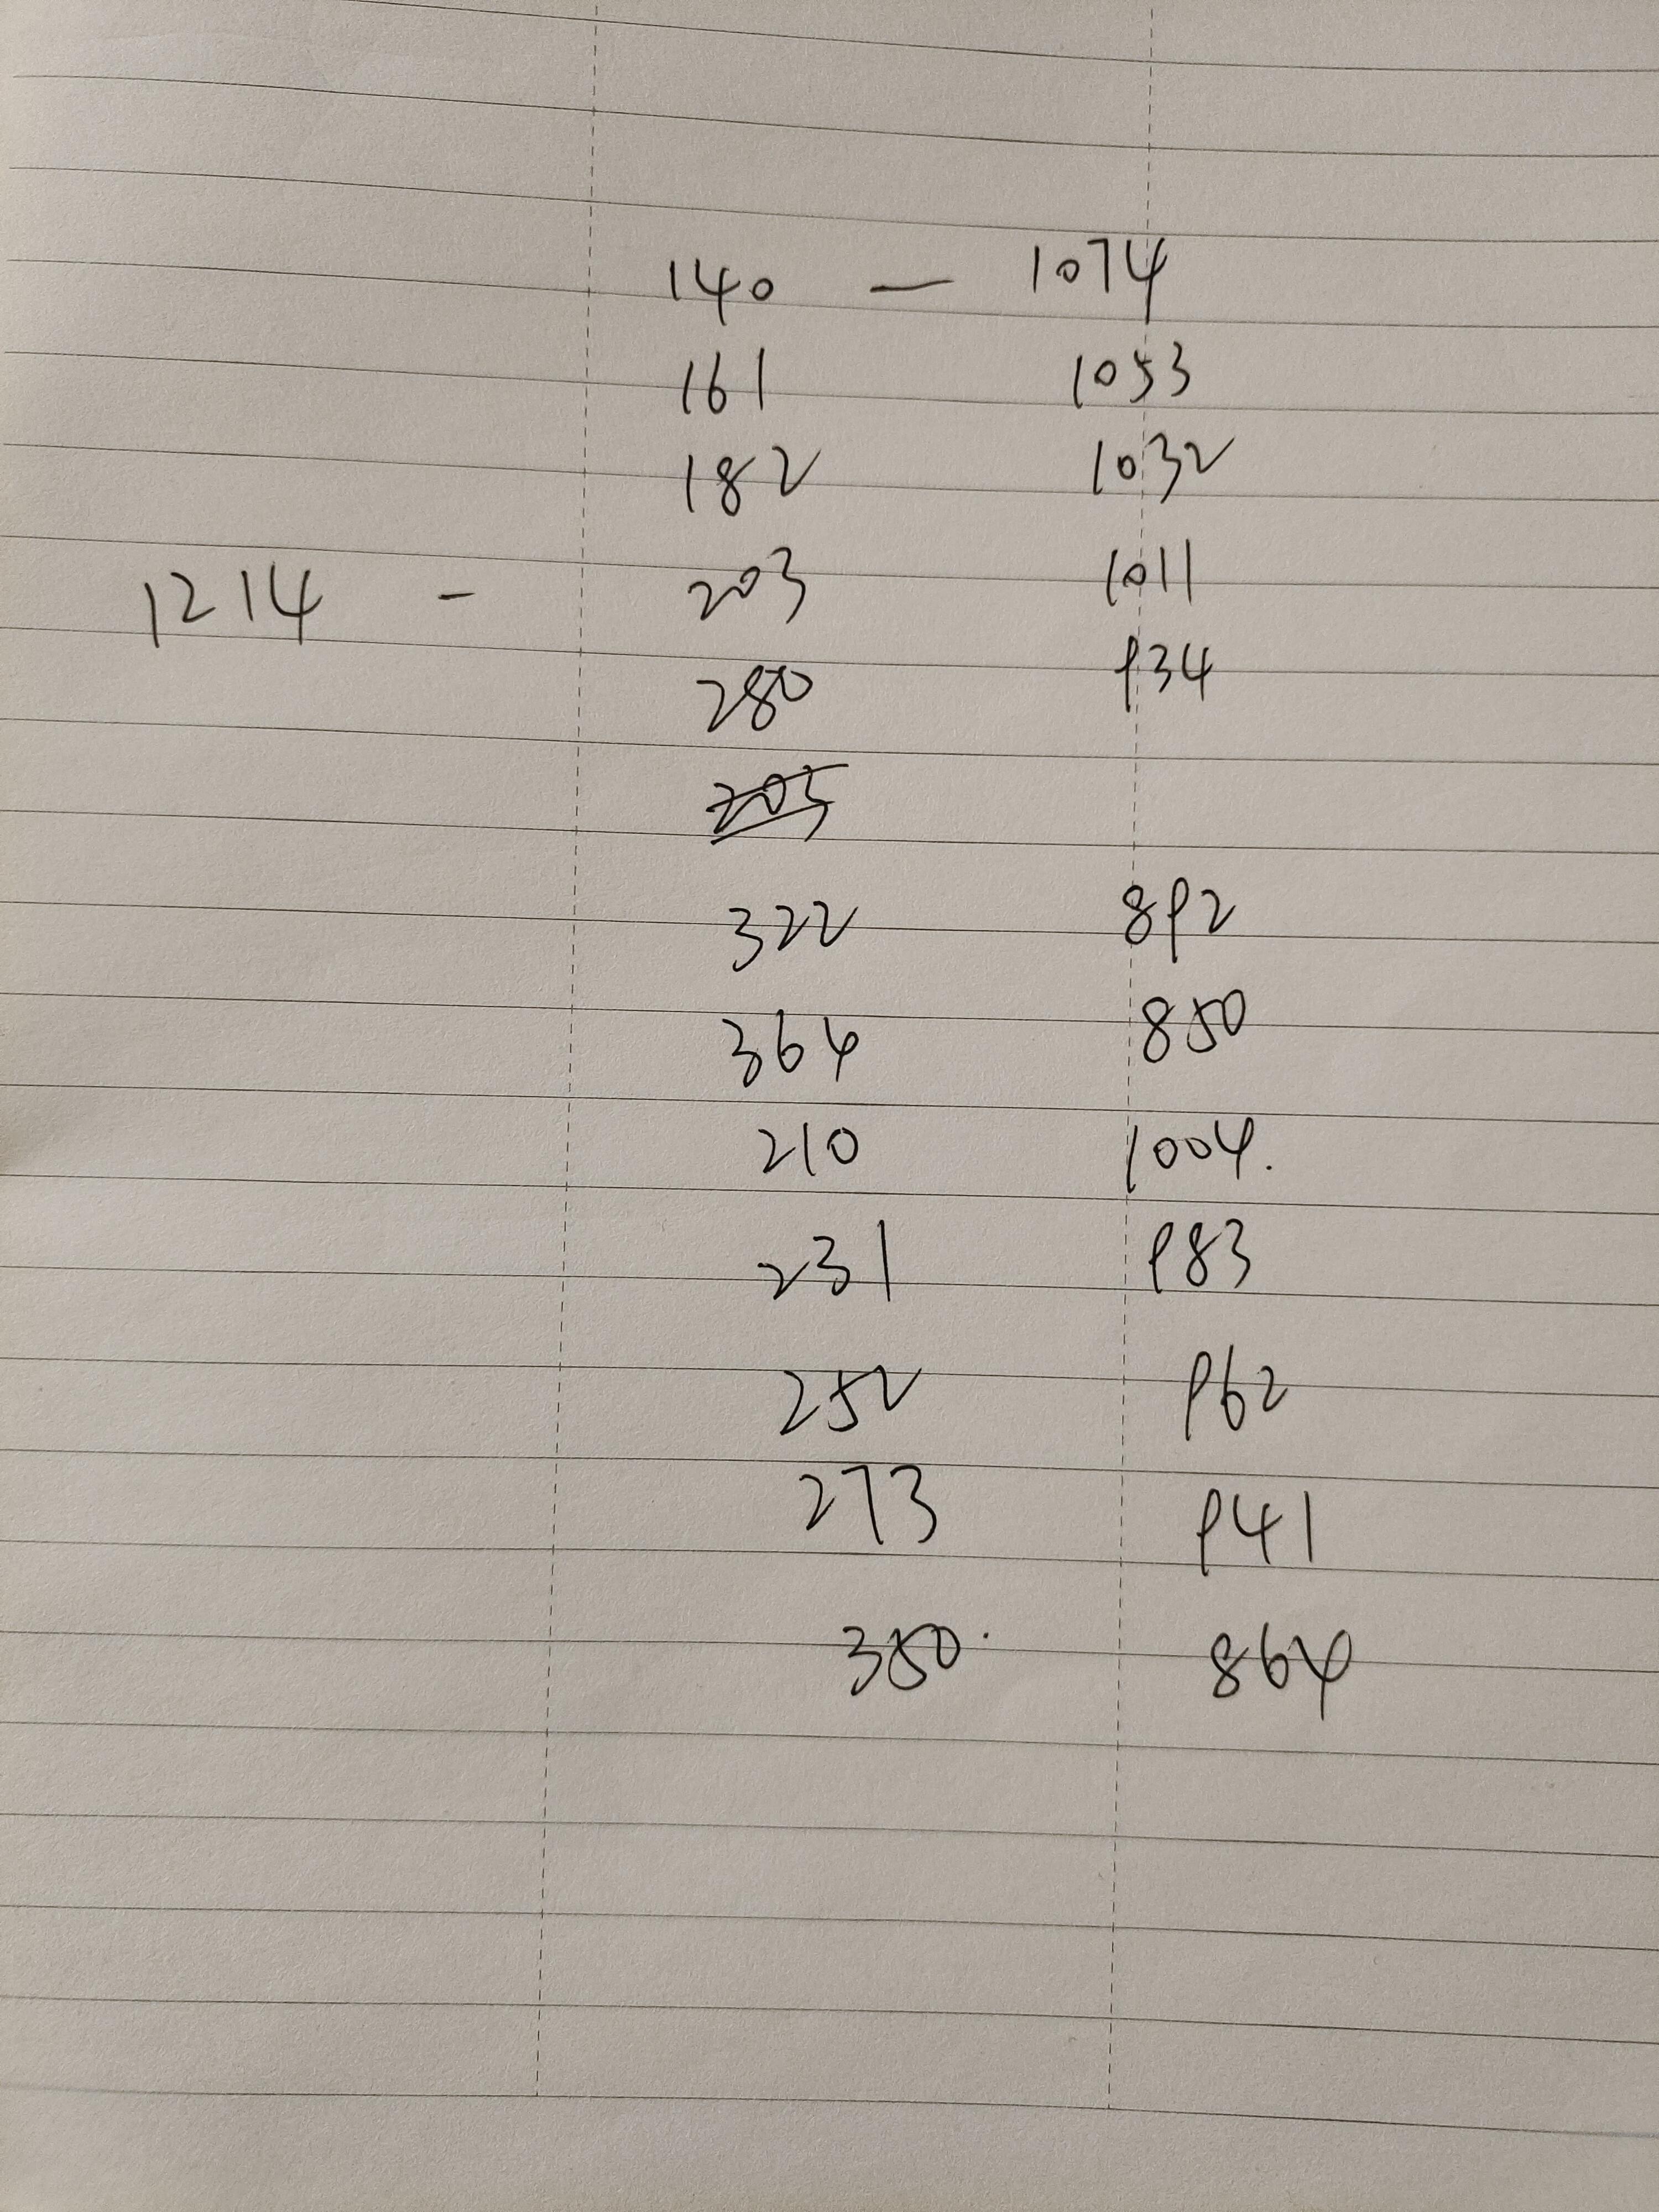 140 — 1074
161 1053
182 1032
1214 - 203 1011
280 934
203
322 892
364 850
210 1004.
231 983
252 962
273 941
350. 864